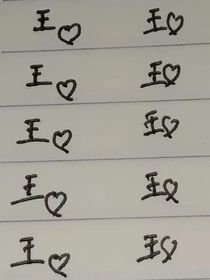 王♡ 王♡
王♡ 王♡
王♡ 王♡
王♡ 王♡
王♡ 王♡